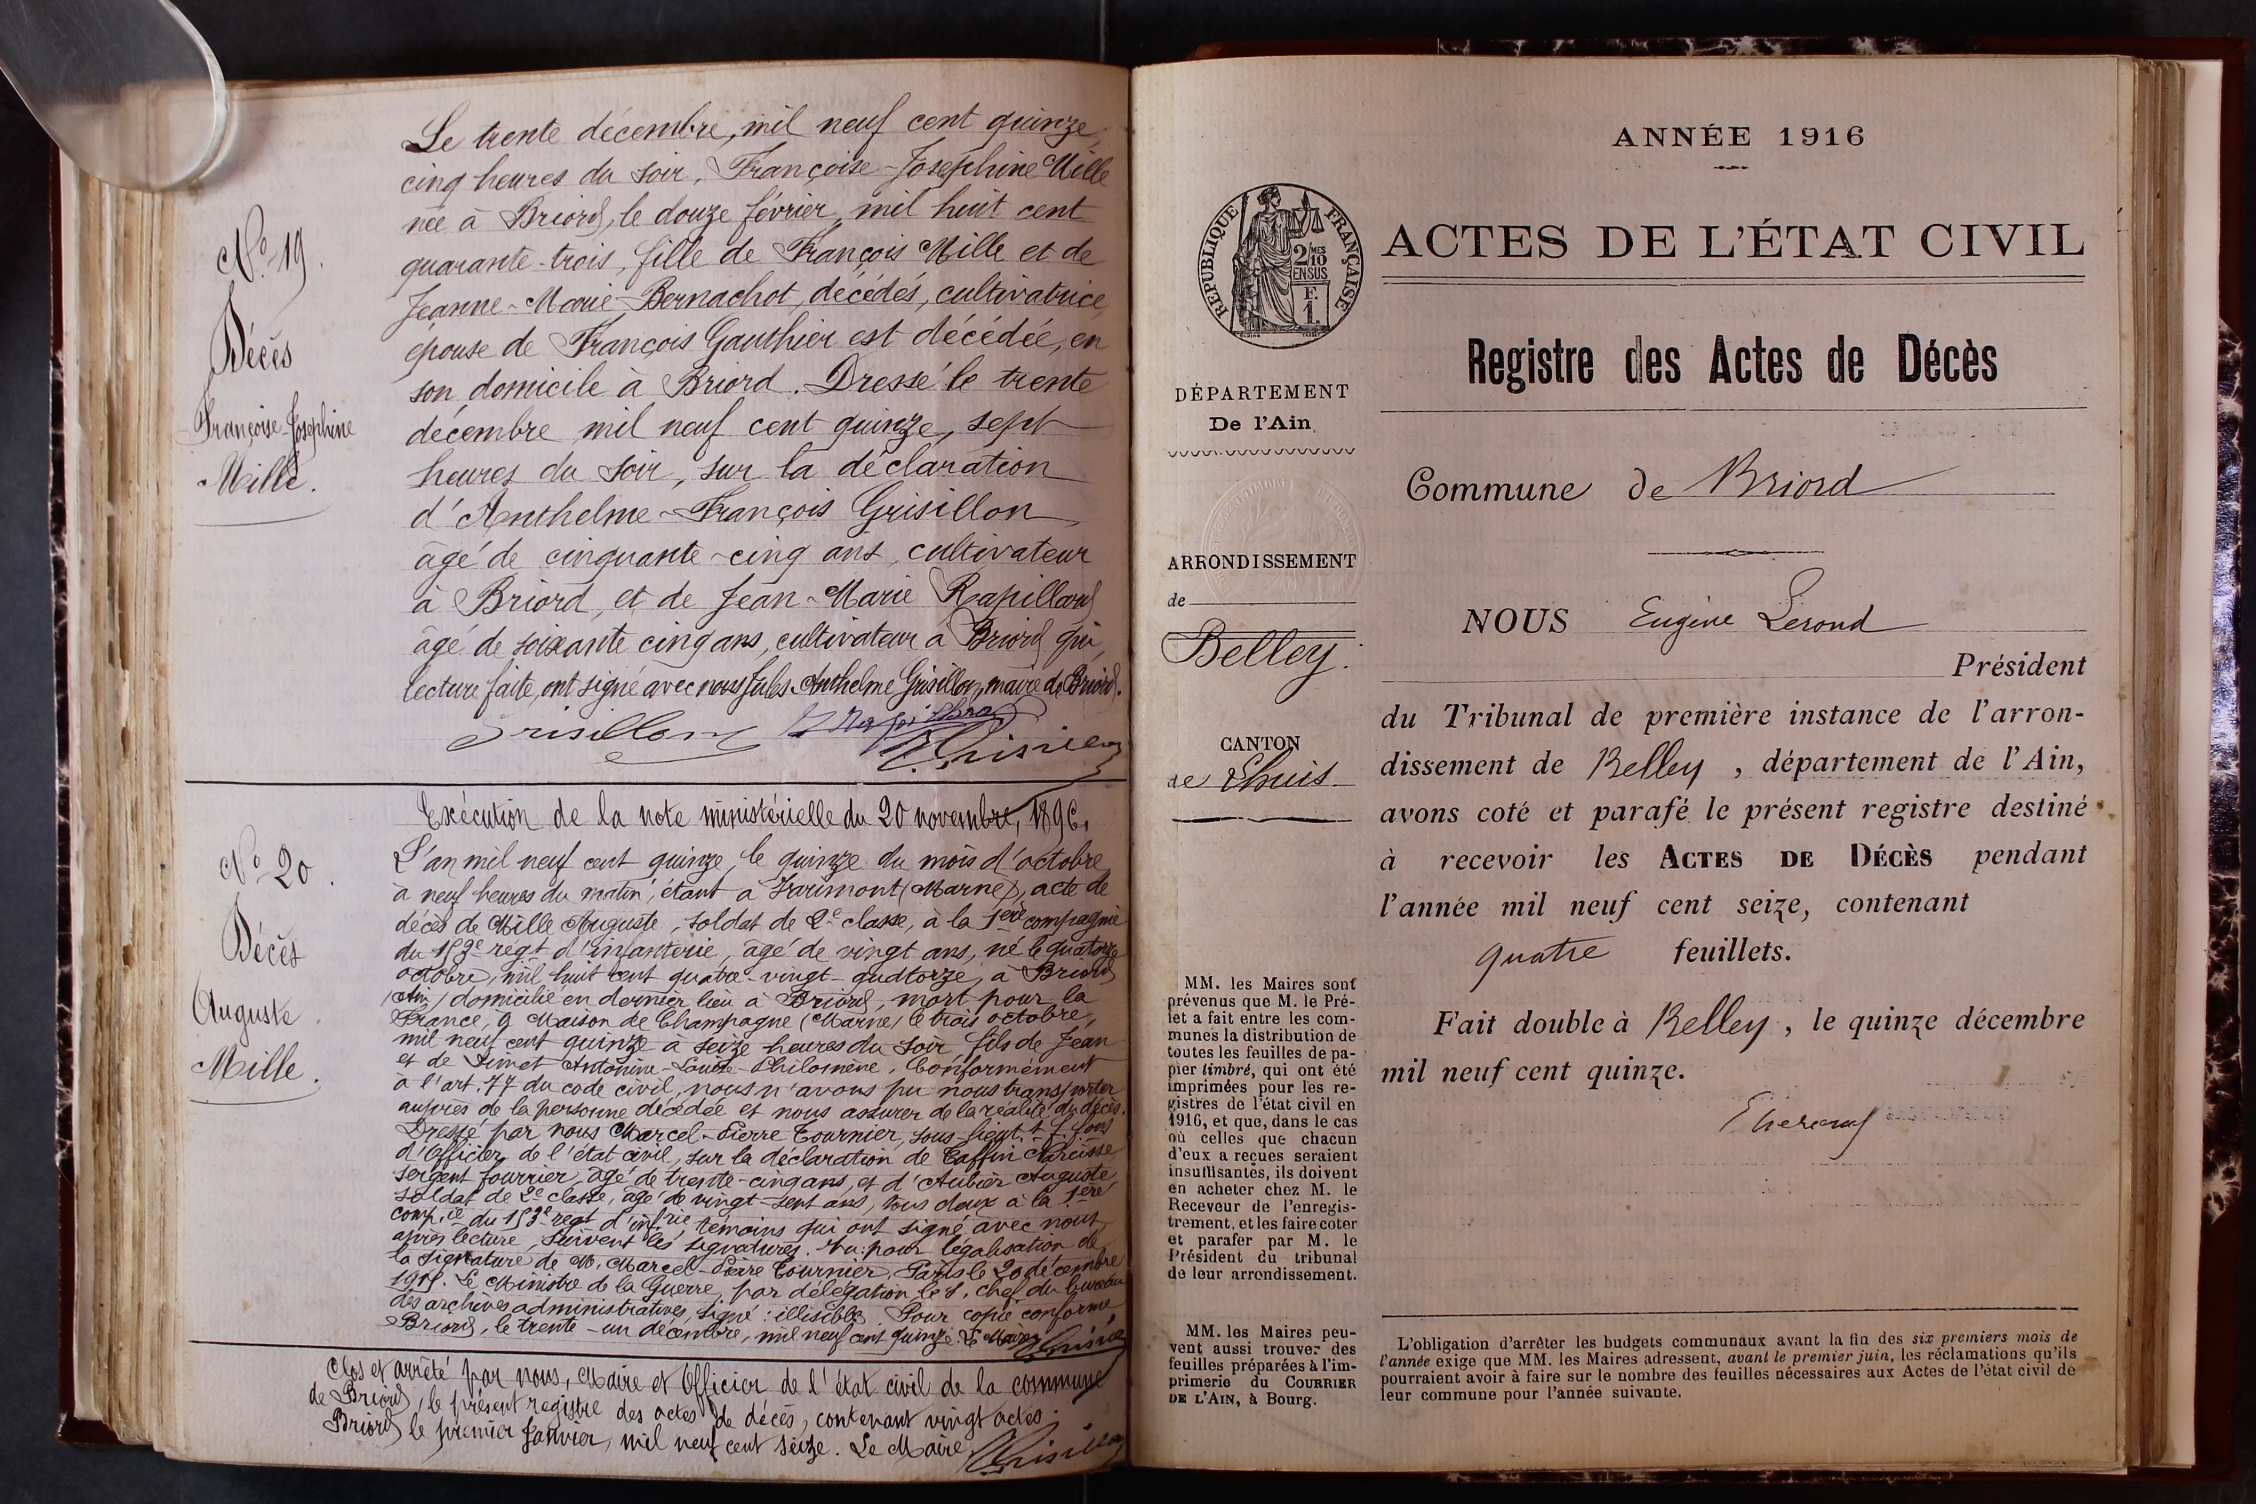 Le trente décembre, mil neuf cent quinze,
cinq heures du soir, Françoise-Josephine Mille
née à Briord, le douze février, mil huit cent
quarante-trois, fille de François Mille et de
Jeanne-Marie Bernachot, décédés, cultivatrice,
épouse de François Gauthier est décédée, en
son domicile à Briord. Dressé le trente
décembre mil neuf cent quinze, sept
heures du soir, sur la déclaration
d'Anthelme-François Grisillon,
âgé de cinquante-cinq ans, cultivateur
à Briord, et de Jean-Marie Rapillard
âgé de soixante cinq ans, cultivateur à Briord qui,
lecture faite, ont signé avec nous Jules Anthelme Grisillon, maire de Briord.
Grisillon Rapillard
Grisillon
No 19.
Décès
Françoise-Josephine
Mille.
Exécution de la note ministérielle du 20 novembre, 1896.
No 20.
Décès
Auguste
Mille.
L'an mil neuf cent quinze, le quinze du mois d'octobre
à neuf heures du matin, étant à (Marne), acte de
décès de Mille Auguste, soldat de 2e classe, à la 1ère compagnie
du 153e régt d'infanterie, âgé de vingt ans, né le quatorze
octobre, mil huit cent quatre-vingt quatorze, à Briord
(Ain) domicilié en dernier lieu à Briord, mort pour la
France, à Maison de Champagne (Marne) le trois octobre,
mil neuf cent quinze à seize heures du soir fils de Jean
et de Simet Antonine-Louise-Philomène. Conformément
à l'art. 77 du code civil, nous n'avons pu nous transporter
auprès de la personne décédée et nous assurer de la réalité du décès.
Dressé par nous Marcel-Pierre Tournier, sous-lieut. ff fons
d'Officier de l'état civil, sur la déclaration de Caffin Narcisse
sergent fourrier, âgé de trente-cinq ans, et d'Aubier Auguste,
soldat de 2e classe, âgé de vingt-sept ans, tous deux à la 1ère
comp.ie du 153e régt d'inf.rie témoins qui ont signé avec nous
après lecture, suivent les signatures. Vu: pour légalisation de
la signature de M. Marcel-Pierre Tournier, Paris le 20 décembre
1915. Le Ministre de la Guerre, par délégation, le s. chef du bureau
des archives administratives, signé: illisible. Pour copie conforme,
Briord, le trente-un décembre, mil neuf cent quinze. Le Maire Grisillon
Clos et arrêté par nous, Maire et Officier de l'état civil de la commune
de Briord, le présent registre des actes de décès, contenant vingt actes.
Briord le premier Janvier, mil neuf cent seize. Le Maire Grisillon
ANNÉE 1916
RÉPUBLIQUE FRANÇAISE
2/10 MES
EN SUS
F.
1.
ACTES DE L'ÉTAT CIVIL
Registre des Actes de Décès
DÉPARTEMENT
De l'Ain
Commune de Briord
ARRONDISSEMENT
de
Belley.
CANTON
de Lhuis
NOUS Eugène Lerond
Président
du Tribunal de première instance de l'arron-
dissement de Belley, département de l'Ain,
avons coté et parafé le présent registre destiné
à recevoir les ACTES DE DÉCÈS pendant
l'année mil neuf cent seize, contenant
quatre feuillets.
Fait double à Belley, le quinze décembre
mil neuf cent quinze.
MM. les Maires sont
prévenus que M. le Pré-
fet a fait entre les com-
munes la distribution de
toutes les feuilles de pa-
pier timbré, qui ont été
imprimées pour les re-
gistres de l'état civil en
1916, et que, dans le cas
où celles que chacun
d'eux a reçues seraient
insuffisantes, ils doivent
en acheter chez M. le
Receveur de l'enregis-
trement, et les faire coter
et parafer par M. le
Président du tribunal
de leur arrondissement.
MM. les Maires peu-
vent aussi trouver des
feuilles préparées à l'im-
primerie du COURRIER
DE L'AIN, à Bourg.
L'obligation d'arrêter les budgets communaux avant la fin des six premiers mois de
l'année exige que MM. les Maires adressent, avant le premier juin, les réclamations qu'ils
pourraient avoir à faire sur le nombre des feuilles nécessaires aux Actes de l'état civil de
leur commune pour l'année suivante.